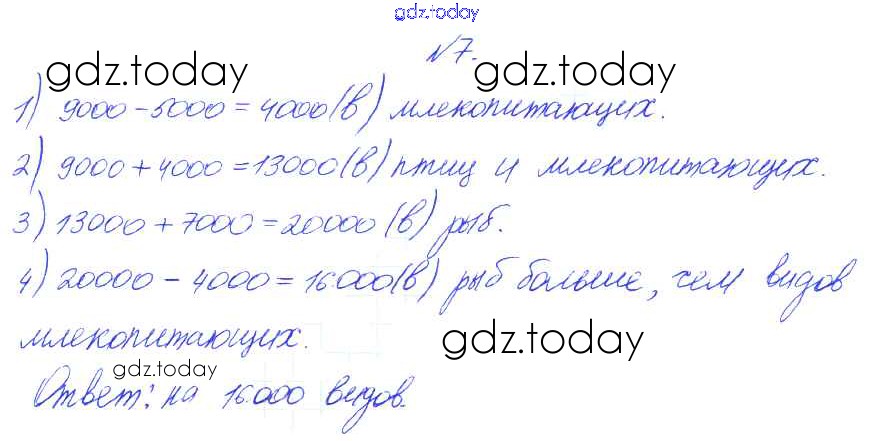 gdz.today
№7.
gdz.today gdz.today
1) 9000 - 5000 = 4000 (в) млекопитающих.
2) 9000 + 4000 = 13000 (в) птиц и млекопитающих.
3) 13000 + 7000 = 20000 (в) рыб.
4) 20000 - 4000 = 16000 (в) рыб больше, чем видов
млекопитающих.
gdz.today
gdz.today
Ответ: на 16000 видов.